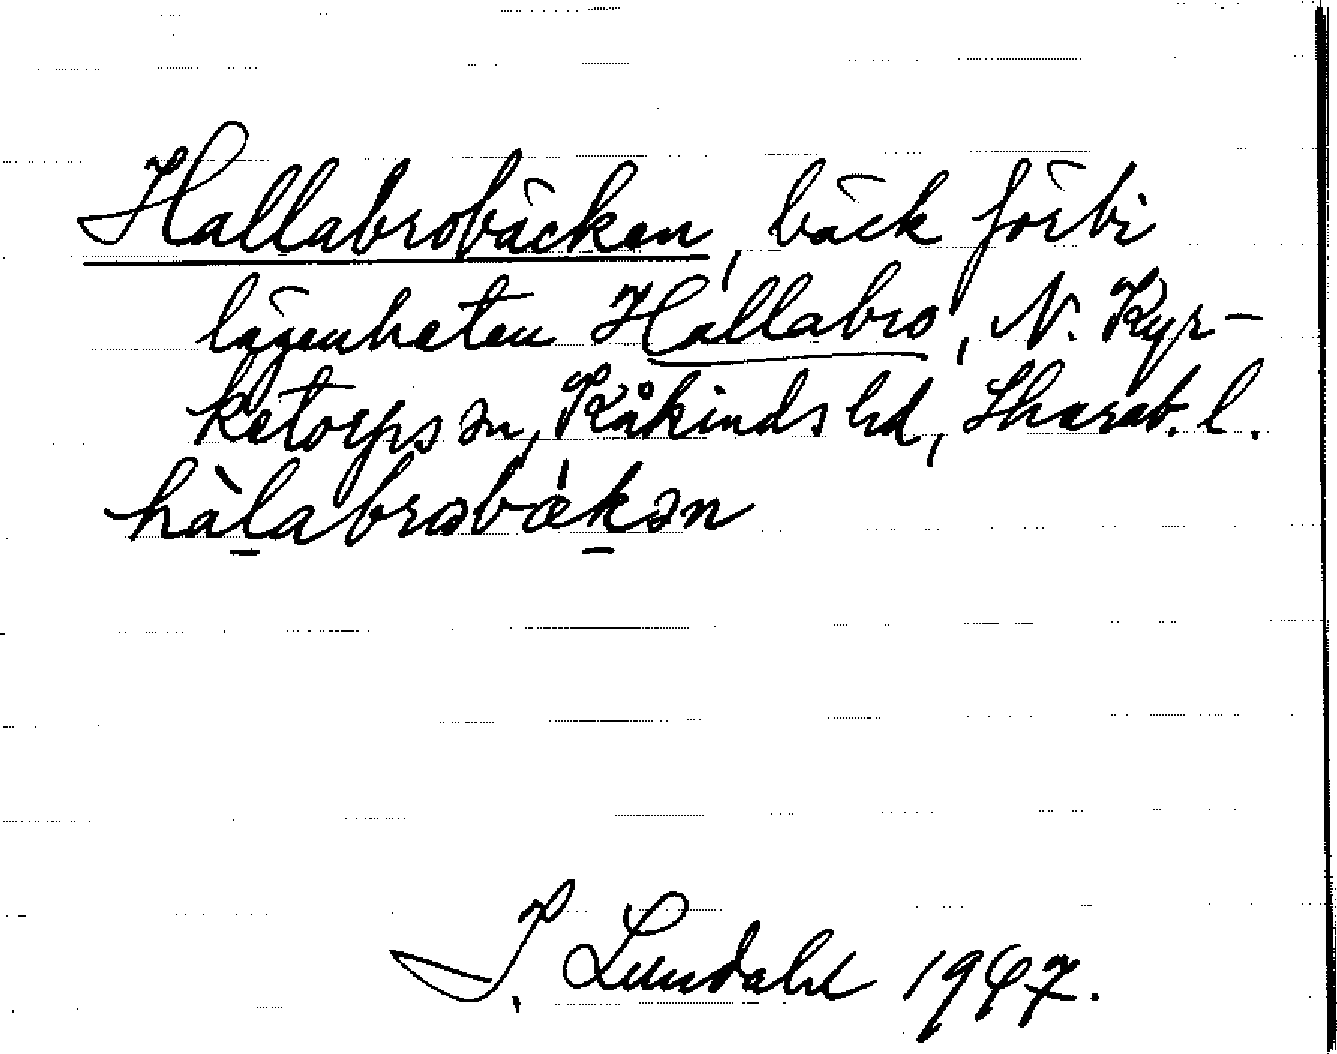 Hallabrobäcken, bäck förbi
lägenheten Hallabro, N. Kyr-
ketorps sn, Kåkinds hd, Skarab. l.
hàlabrɷbækən
I. Lundahl 1947.